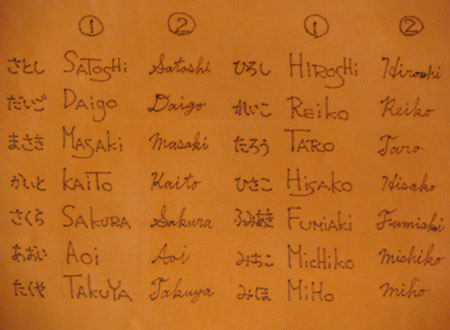 ① ② ① ②
さとし SATOSHi Satoshi ひろし HIROSHi Hiroshi
だいご DAigo Daigo れいこ REiKO Reiko
まさき MASAKi Masaki たろう TARO Taro
かいと KAiTO Kaito ひさこ HiSAKO Hisako
さくら SAKURA Sakura ふみあき FUMiAKi Fumiaki
あおい AOi Aoi みちこ MiCHiKO Mishiko
たくや TAKUYA Takuya みほ MiHO Miho